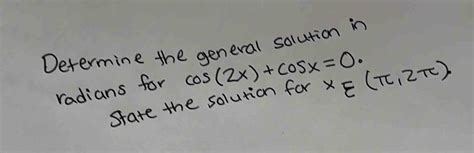 Determine the general solution in
radians for cos(2x)+cosx=0.
State the solution for x E (π,2π).